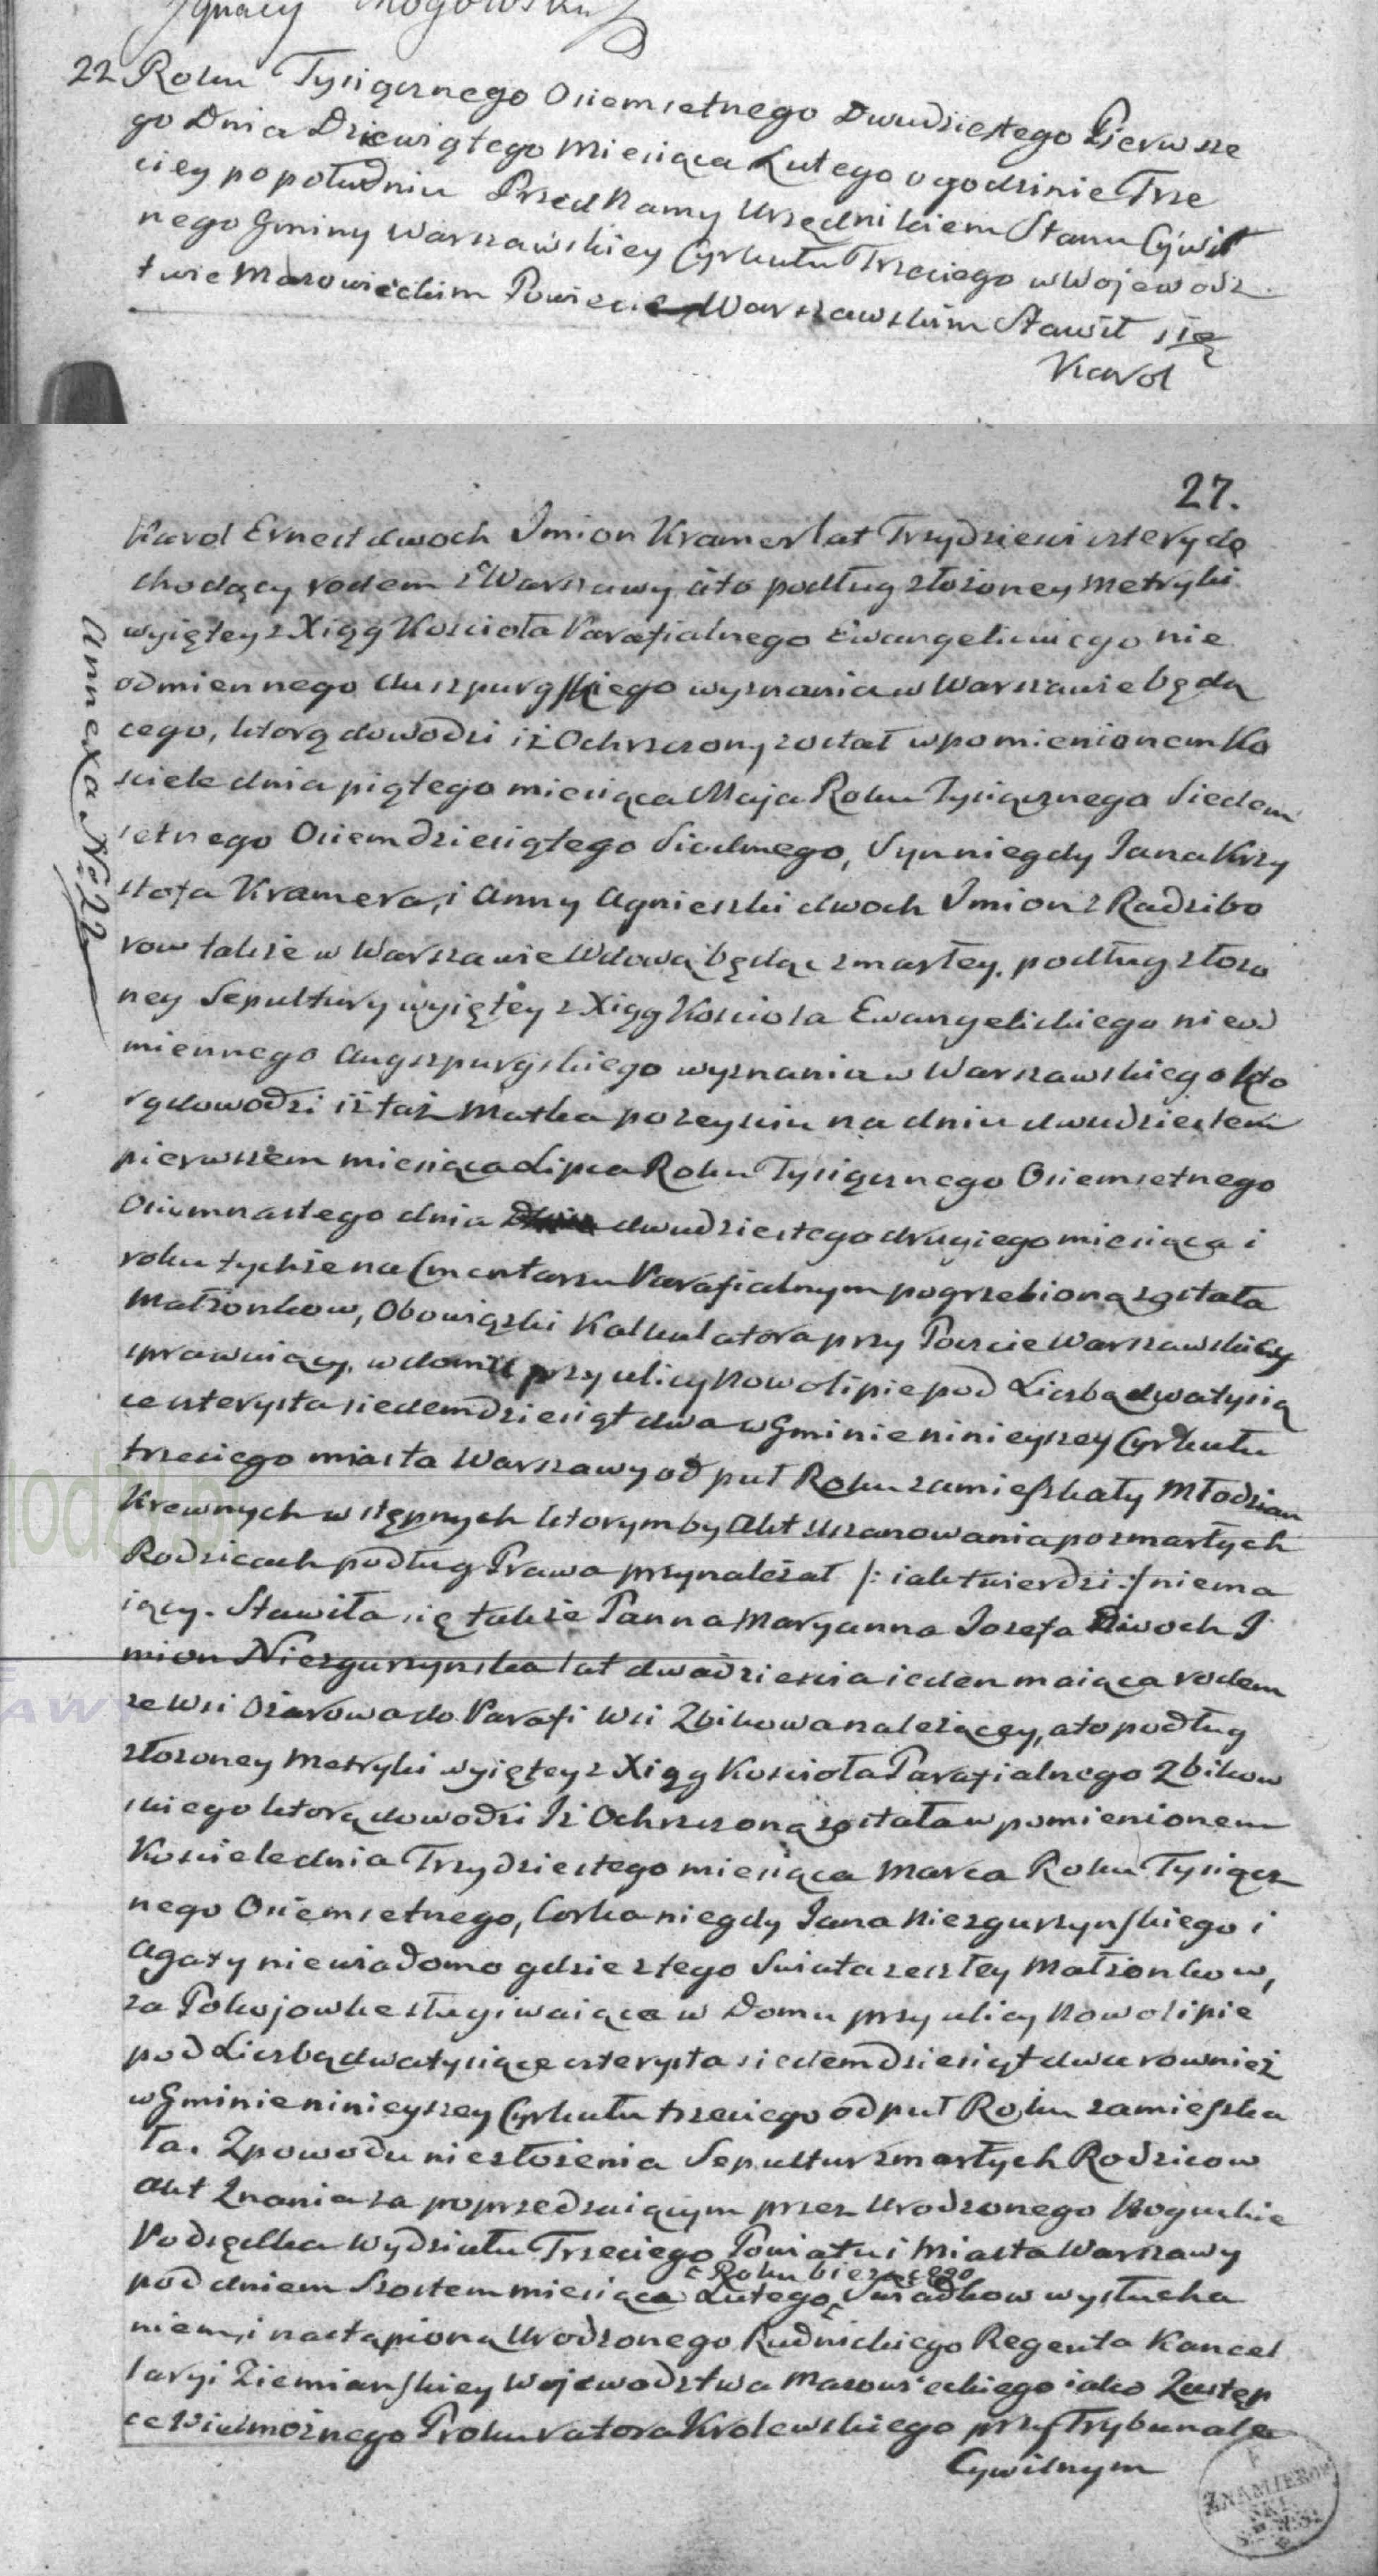 Ignacy
22 Roku Tysiącznego Osiemsetnego Dwudziestego Pierwsze
go Dnia Dziewiątego Miesiąca Lutego o godzinie Trze
ciey popołudniu Przed Namy Urzędnikiem Stanu Cywil
nego Gminy Warszawskiey Cyrkułu Trzeciego w Wojewodz
twie Mazowieckim Powiecie Warszawskim Stawił się
Karol
27.
Karol Ernest dwoch Imion Kramer lat Trzydzieści cztery do
chodzący rodem z Warszawy, a to podług złożoney Metryki
wyiętey z Xiąg Kościoła Parafialnego Ewangelickiego nie
odmiennego Auszpurgskiego wyznania w Warszawie będą
cego, ktorą dowodzi iż Ochrzczony został wpomienionem Ko
sciele dnia piątego miesiąca Maja Roku Tysiącznego Siedem
setnego Osiemdziesiątego Siodmego, Syn niegdy Jana Krzy
sztofa Kramera, i Anny Agnieszki dwoch Imion z Radzibo
row także w Warszawie Wdową będąc zmarłey, podług złożo
ney Sepultury wyiętey z Xiąg Kościoła Ewangelickiego nieod
miennego Augszpurgskiego wyznania w Warszawskiego kto
rą dowodzi iż taż Matka po zeyściu na dniu dwudziestem
pierwszem miesiąca Lipca Roku Tysiącznego Osiemsetnego
Osiemnastego dnia dwudziestego drugiego miesiąca i
roku tychże na Cmentarzu Parafialnym pogrzebioną została
Małżonkow, Obowiązki Kalkulatora przy Poczcie Warszawskiey
sprawuiący, w domu przy ulicy Nowolipie pod Liczbą dwa tysią
ce czterysta siedemdziesiąt dwa w Gminie ninieyszey Cyrkułu
trzeciego miasta Warszawy od puł Roku zamieszkały Młodzian
Krewnych wstępnych ktorym by Akt Uszanowania po zmarłych
Rodzicach podług Prawa przynależał /: iak twierdzi :/ nie ma
iący. Stawiła się także Panna Maryanna Jozefa Dwoch I
mion Niezgurzynska lat dwadzieścia ieden maiąca rodem
ze Wsi Ożarowa do Parafi Wsi Zbikowa należącey, a to podług
złożoney Metryki wyiętey z Xiąg Kościoła Parafialnego Zbikow
skiego ktorą dowodzi Iż Ochrzczoną została w pomienionem
Kościele dnia Trzydziestego miesiąca Marca Roku Tysiącz
nego Osiemsetnego, Corka niegdy Jana Niezgurzynskiego i
Agaty niewiadomo gdzie z tego Swiata zeszłey Małżonkow,
za Pokojowke sługiwaiąca w Domu przy ulicy Nowolipie
pod Liczbą dwa tysiące czterysta siedemdziesiąt dwa rownież
w Gminie ninieyszey Cyrkułu trzeciego od puł Roku zamieszka
ła. Z powodu niezłożenia Sepultur zmarłych Rodzicow
Akt Znania za poprzedzaiącym przez Urodzonego
Podsędka Wydziału Trzeciego Powiatu i Miasta Warszawy
Roku bierzącego
pod dniem Szostem miesiąca Lutego, Swiadkow wysłucha
niem, i nastąpioną Urodzonego Rudnickiego Regenta Kancel
laryi Ziemianskiey Wojewodztwa Mazowieckiego iako Zastęp
ce Wielmożnego Prokuratora Krolewskiego przy Trybunale
Cywilnym
Annexa No 22